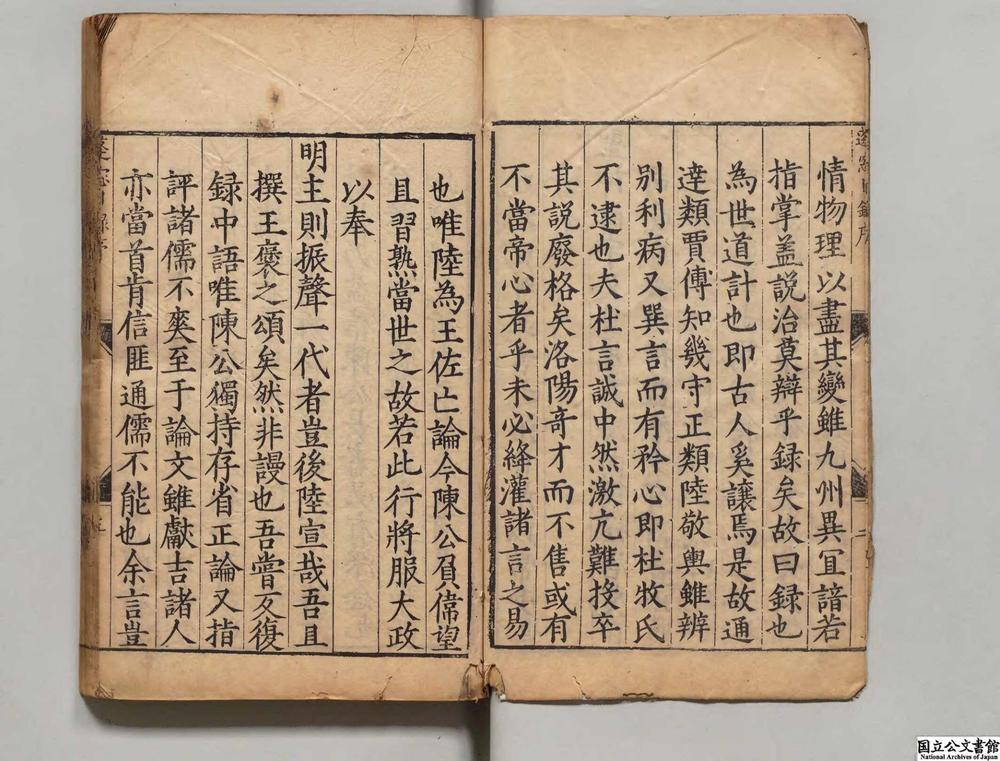 情物理以盡其變雖九州異冝諳若
指掌盖説治莫辯乎録矣故曰録也
為世道計也即古人奚讓焉是故通
逹類賈傅知幾守正類陸敬輿雖辨
别利病又巽言而有矜心即杜牧氏
不逮也夫杜言誠中然激亢難投卒
其説廢格矣洛陽竒才而不售或有
不當帝心者乎未必絳灌諸言之易
也唯陸為王佐亡論今陳公負偉望
且習熟當世之故若此行將服大政
以奉
明主則振聲一代者豈後陸宣哉吾且
撰王褒之頌矣然非謾也吾嘗反復
録中語唯陳公獨持存省正論又指
評諸儒不爽至于論文雖獻吉諸人
亦當首肯信匪通儒不能也余言豈
国立公文書館
National Archives of Japan